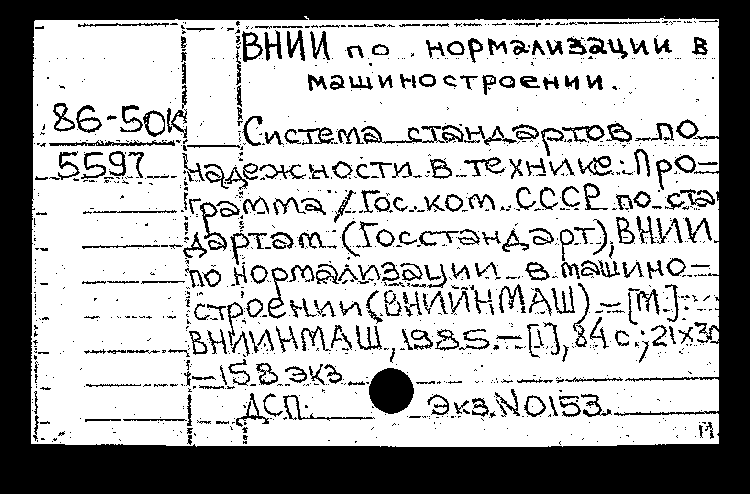 ВНИИ по нормализации в
машиностроении.
86-50к
Система стандартов по
5597
надежности в технике: Про-
грамма / Гос. ком. СССР по ста
дартам (Госстандарт), ВНИИ
по нормализации в машино-
строении (ВНИИНМАШ) - [М.]:
ВНИИНМАШ, 1985. - [1], 84 с.; 21х30
- 158 экз
ДСП. Экз. N0153.
П